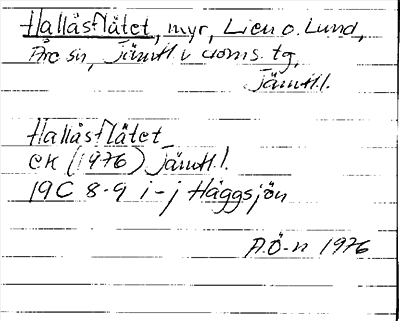 Hallåsflåtet, myr, Lien o. Lund,
Åre sn, Jämtl. v doms. tg,
Jämtl.
Hallåsflåtet
EK (1976) Jämtl.
19C 8-9 i-j Häggsjön
A.Ö-n 1976